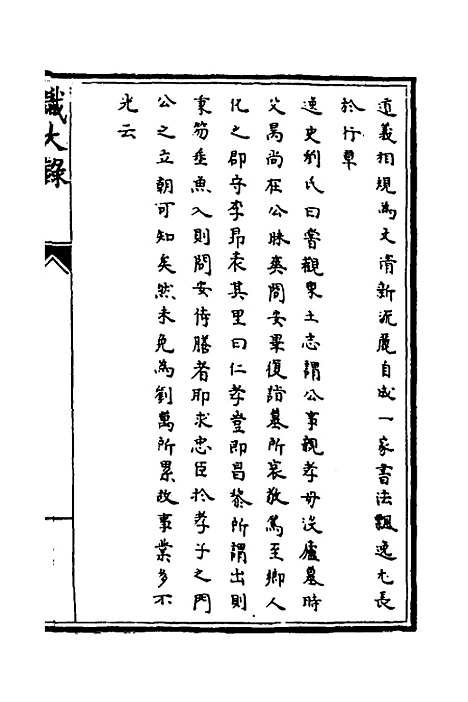 道義相規為文清新流麗自成一家書法飄逸尤長
於行草
逸史劉氏曰嘗觀泉土志謂公事親孝母沒廬墓時
父昺尚在公昧爽問安畢復詣墓所哀敬篤至鄉人
化之郡守李昂表其里曰仁孝堂即昌黎所謂出則
秉笏垂魚入則問安侍膳者耶求忠臣於孝子之門
公之立朝可知矣然未免為劉萬所累故事業多不
光云
識大錄